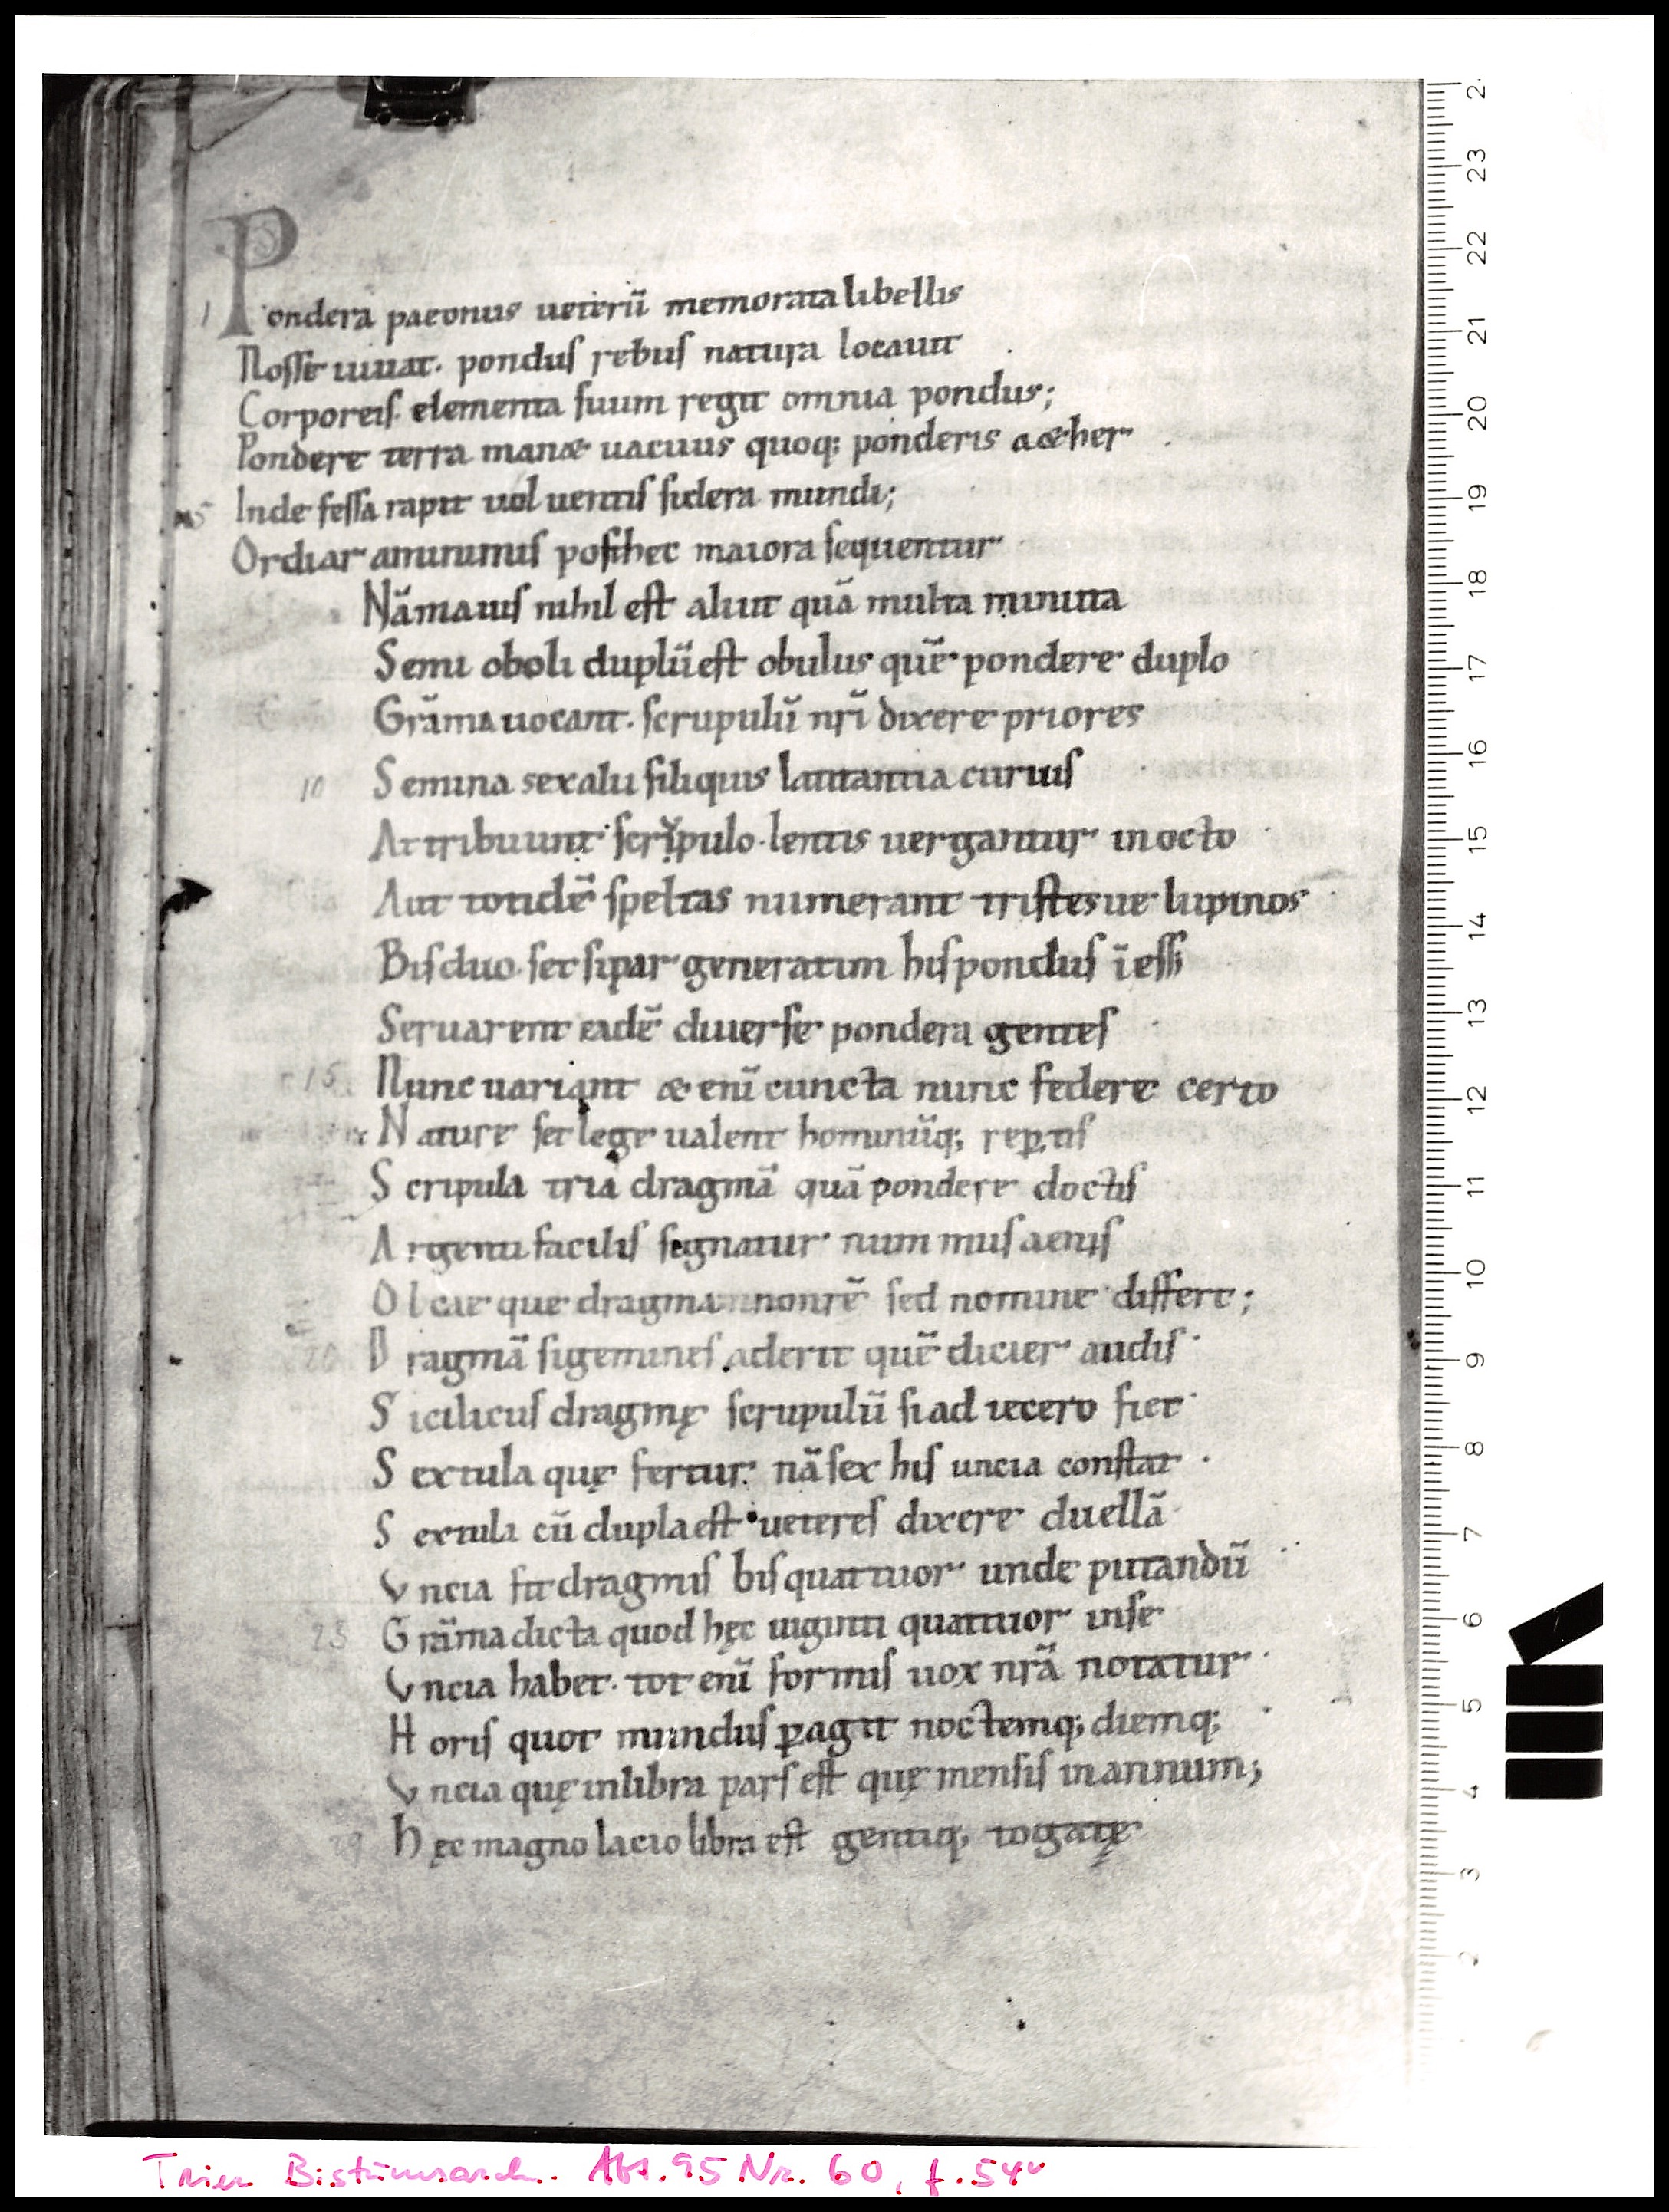 1 Pondera paeonus ueterū memorata libellis
Nosse iuuat. pondus rebus natura locauit
Corporeis. elementa suum regit omnia pondus;
Pondere terra manæ uacuus quoq; ponderis aæher
5 Inde fessa rapit uoluentis sidera mundi;
Ordiar aminimis posthec maiora sequentur
Nāmaius nihil est aliut quā multa minuta
Semi oboli duplūest obulus quē pondere duplo
Grāma uocant. scrupulū nr̄i dixere priores
10 Semina sexalii siliquis latitantia curuis
Attribuunt scrypulo. lentis uergantur in octo
Aut totidē speltas numerant tristesue lupinos
Bisduo. set sipar generatim his pondus īess&
Seruarent eadē diuerse pondera gentes
15 Nunc uariant æ enī cuncta nunc federe certo
Nature set lege ualent hominūq; rep̱tis
Scripula tria dragmā quā pondere doctis
Argenti facilis signatur nummus aenis
Olcae que dragma nonrē sed nomine differt;
20 Dragmā sigemines. aderit quē dicier audis
Sicilicus dragmę scrupulū si ad iecero fiet
Sextula quę fertur. nā sex his uncia constat.
Sextula cū dupla est ueteres dixere duellā
Vncia fit dragmis bis quattuor unde putandū
25 Grāma dicta quod hęc uiginti quattuor inse
Vncia habet. tot enī formis uox nr̄a notatur
Horis quot mundus p̱agit noctemq; diemq;
Vncia quę inlibra pars est quę mensis in annum;
29 Hęc magno lacio libra est gentiq; togatę
Trier Bistumsarch. Abt. 95 Nr. 60, f. 54v
2 23 22 21 20 19 18 17 16 15 14 13 12 11 10 9 8 7 6 5 4 3 2